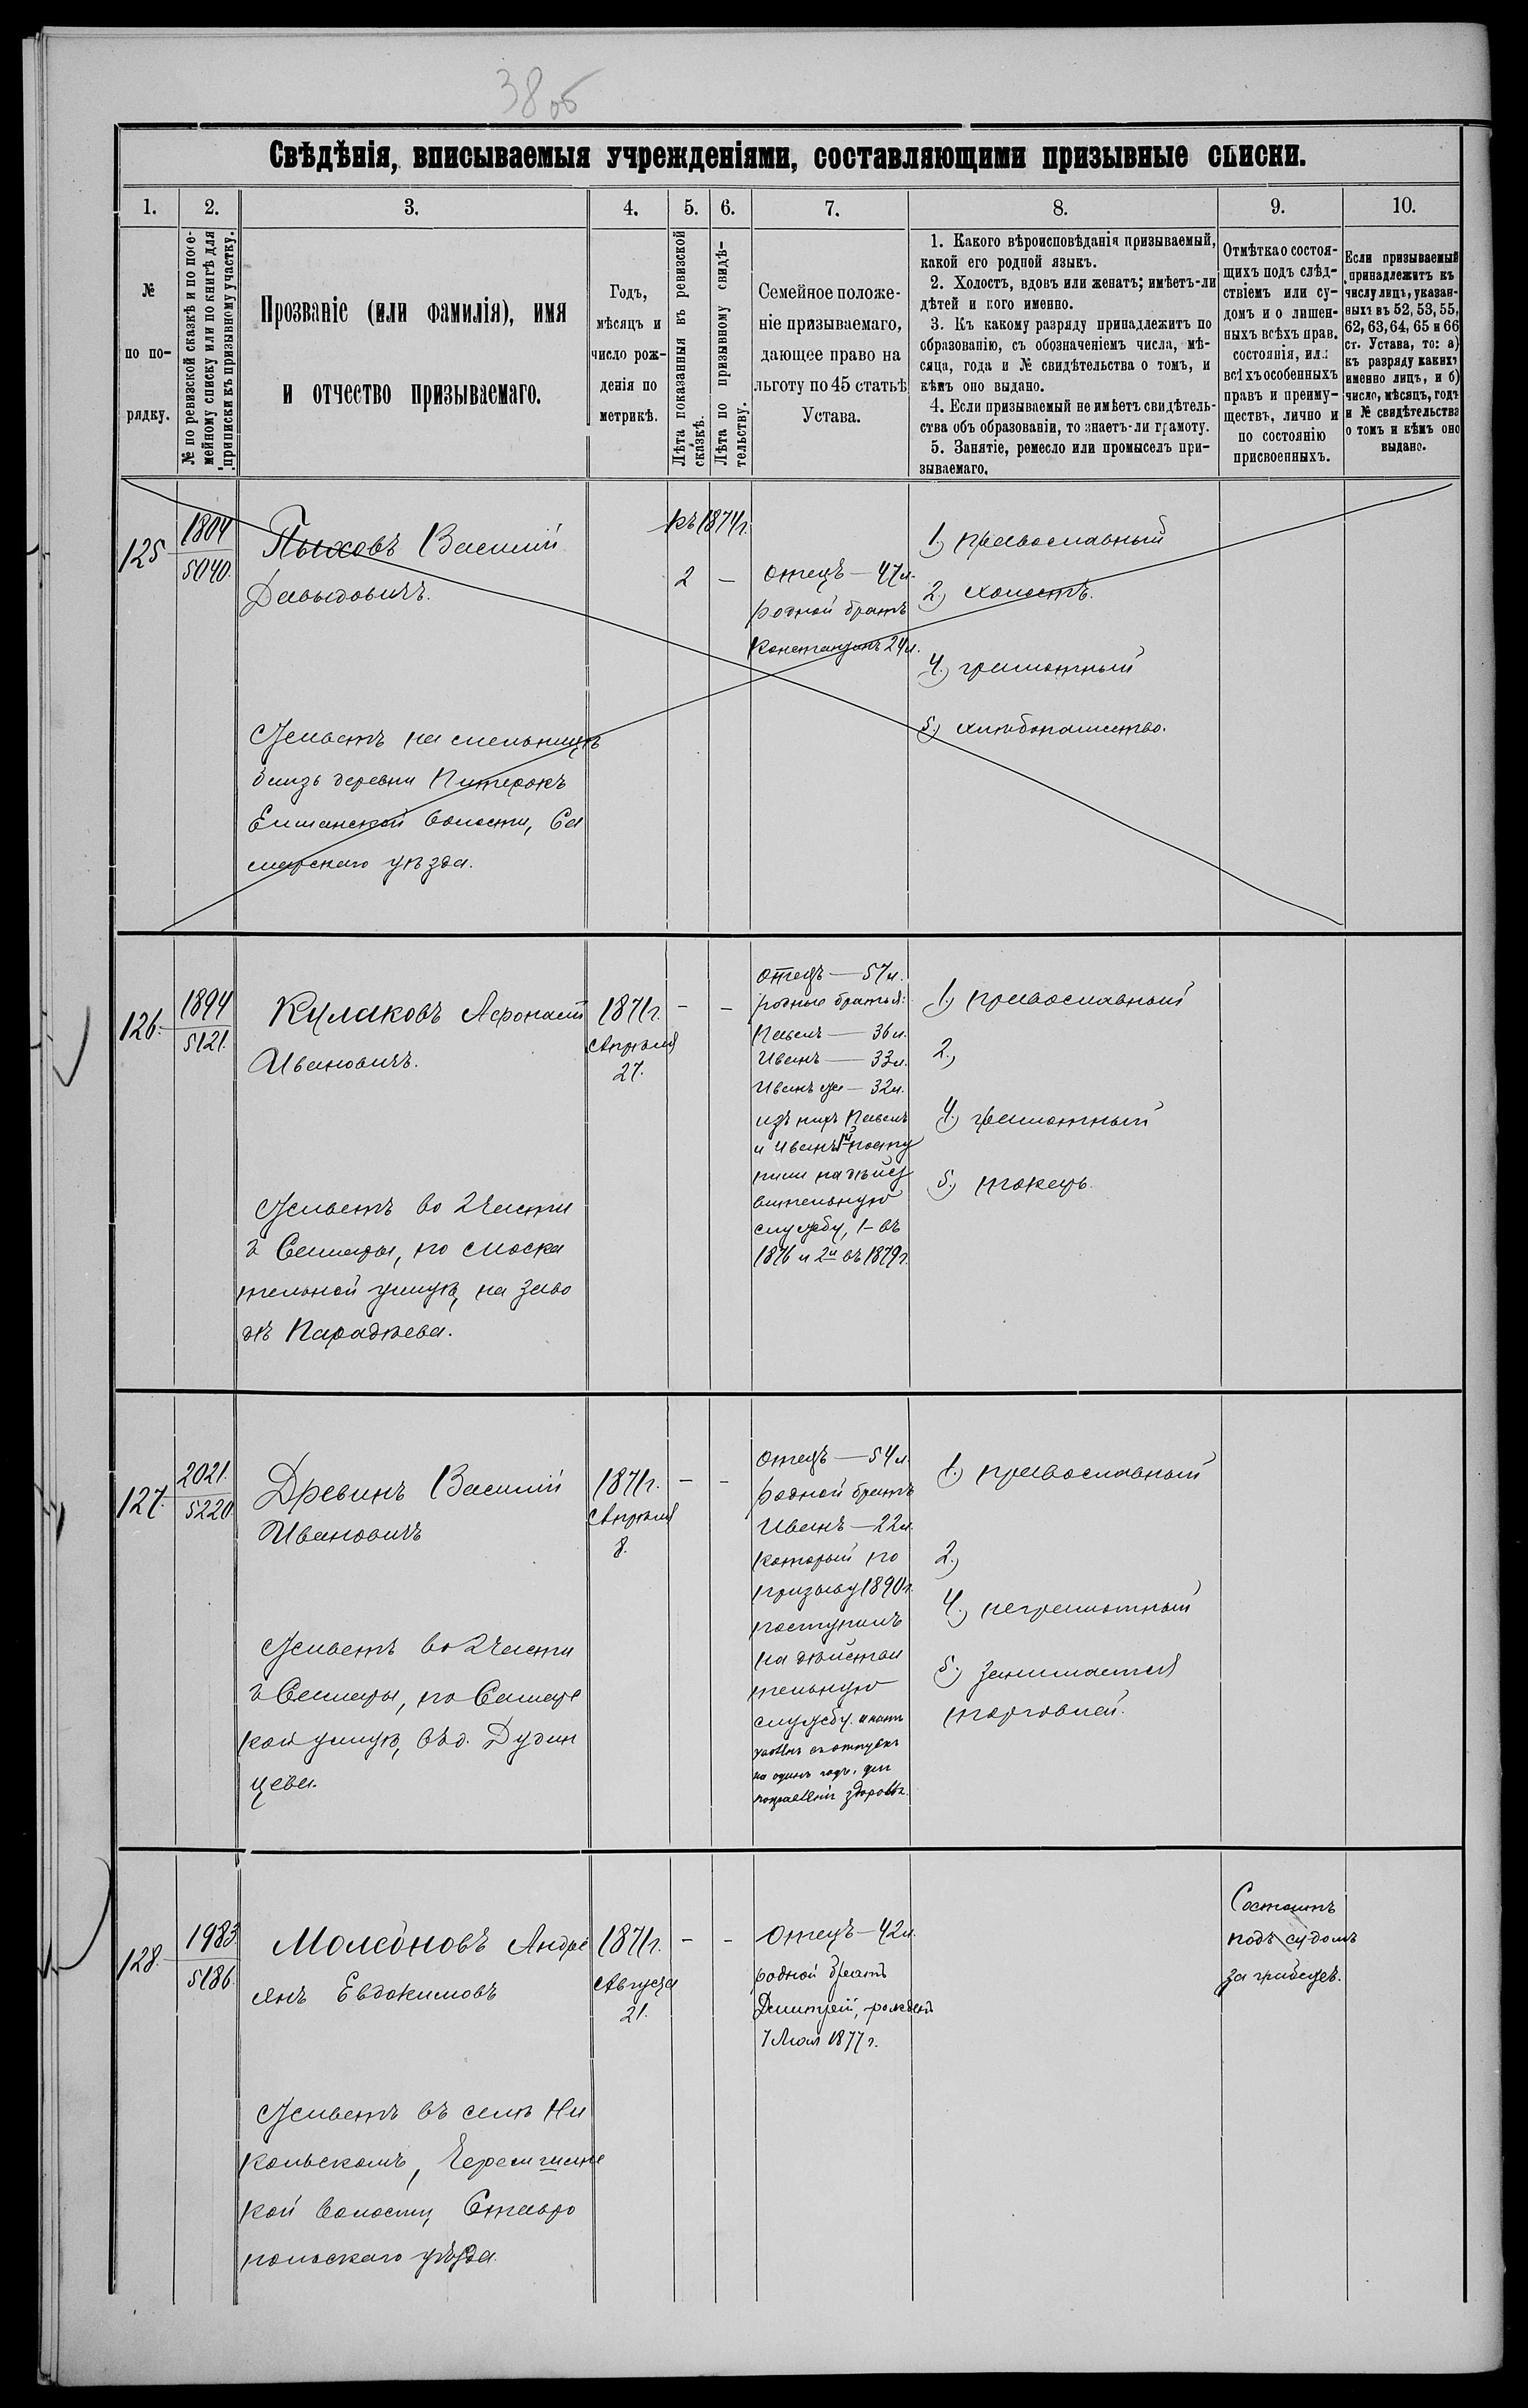 38 об
Свѣдѣнія, вписываемыя учрежденіями, составляющими призывные списки.
1.
2.
3.
4.
5.
6.
7.
8.
9.
10.
№
по по-
рядку.
№ по ревизской сказкѣ и по посе-
мейному списку или по книгѣ для
приписки къ призывному участку.
Прозваніе (или фамилія), имя
и отчество призываемаго.
Годъ,
мѣсяцъ и
число рож-
денія по
метрикѣ.
Лѣта показанныя въ ревизской
сказкѣ.
Лѣта по призывному свидѣ-
тельству.
Семейное положе-
ніе призываемаго,
дающее право на
льготу по 45 статьѣ
Устава.
1. Какого вѣроисповѣданія призываемый,
какой его родной языкъ.
2. Холостъ, вдовъ или женатъ; имѣетъ-ли
дѣтей и кого именно.
3. Къ какому разряду принадлежитъ по
образованію, съ обозначеніемъ числа, мѣ-
сяца, года и № свидѣтельства о томъ, и
кѣмъ оно выдано.
4. Если призываемый не имѣетъ свидѣтель-
ства объ образованіи, то знаетъ-ли грамоту.
5. Занятіе, ремесло или промыселъ при-
зываемаго.
Отмѣтка о состоя-
щихъ подъ слѣд-
ствіемъ или су-
домъ и о лишен-
ныхъ всѣхъ прав.
состоянія, или
всѣхъ особенныхъ
правъ и преиму-
ществъ, лично и
по состоянію
присвоенныхъ.
Если призываемый
принадлежитъ къ
числу лицъ, указан-
ныхъ въ 52, 53, 55,
62, 63, 64, 65 и 66
ст. Устава, то: а)
къ разряду какихъ
именно лицъ, и б)
число, мѣсяцъ, годъ
и № свидѣтельства
о томъ и кѣмъ оно
выдано.
125
1804
5040.
Пыховъ Василій
Давыдовичъ.
Живетъ на мельницѣ
близь деревни Питерокъ
Елшанской волости, Са
марскаго уѣзда.
къ 1874 г.
2 —
Отецъ — 47 л.
родной братъ
Константинъ 24 л.
1.) православный
2.) холостъ.
4.) грамотный
5.) хлѣбопашество.
126.
1894
5121.
Кулаковъ Афонасій
Ивановичъ.
Живетъ во 2 части
г Самары, по Москa
тельной улицѣ, на заво
дѣ Парадѣева.
1871 г.
Апрѣля
27.
— —
Отецъ — 57 л.
родные братья:
Павелъ — 36 л.
Иванъ — 33 л.
Иванъ же — 32 л.
изъ нихъ Павелъ
и Иванъ 1й посту
пили на дѣйст
вительную
службу, 1-въ
1876 и 2й въ 1879 г.
1.) православный
2.)
4.) грамотный
5.) токарь.
127.
2021.
5220.
Древинъ Василій
Ивановичъ
Живетъ во 2 части
г Самары, по Самарс
кой улицѣ, въ д. Дудин
цева.
1871 г.
Апрѣля
8.
— —
Отецъ — 54 л.
родной братъ
Иванъ — 22 л.
который по
призыву 1890 г.
поступилъ
на дѣйстви
тельную
службу.
на одинъ годъ, для
поправленія здоровья.
1.) православный
2.)
4.) неграмотный
5.) занимается
торговлей.
128.
1983
5186.
Молесоновъ Андре
янъ Евдокимовъ
Живетъ въ селѣ Ни
кольскомъ, Черемшанс
кой волости, Ставро
польскаго уѣзда.
1871 г.
Августа
21.
— —
Отецъ — 42 л.
родной братъ
Дмитрій, рожден
7 Мая 1877 г.
Состоитъ
подъ судомъ
за грабежъ.